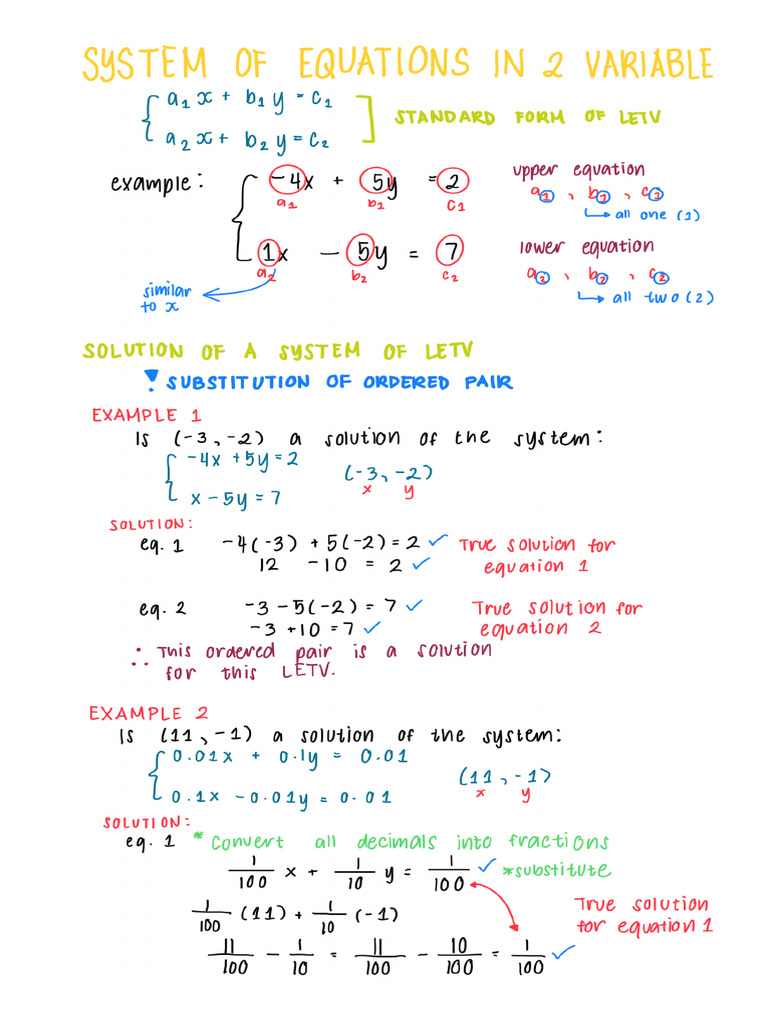 SYSTEM OF EQUATIONS IN 2 VARIABLE
a₁x + b₁y = c₁
a₂x + b₂y = c₂
STANDARD FORM OF LETV
example:
-4x + 5y = 2
a₁ b₁ c₁
1x - 5y = 7
a₂ b₂ c₂
similar
to x
upper equation
a₁, b₁, c₁
all one (1)
lower equation
a₂, b₂, c₂
all two (2)
SOLUTION OF A SYSTEM OF LETV
! SUBSTITUTION OF ORDERED PAIR
EXAMPLE 1
Is (-3, -2) a solution of the system:
-4x + 5y = 2
x - 5y = 7
(-3, -2)
x y
SOLUTION:
eq. 1 -4(-3) + 5(-2) = 2 ✓ True solution for
12 - 10 = 2 ✓ equation 1
eq. 2 -3 - 5(-2) = 7 ✓ True solution for
-3 + 10 = 7 ✓ equation 2
∴ This ordered pair is a solution
for this LETV.
EXAMPLE 2
Is (11, -1) a solution of the system:
0.01x + 0.1y = 0.01
0.1x - 0.01y = 0.01
(11, -1)
x y
SOLUTION:
eq. 1 * Convert all decimals into fractions
1/100 x + 1/10 y = 1/100 ✓ *substitute
1/100 (11) + 1/10 (-1)
11/100 - 1/10 = 11/100 - 10/100 = 1/100 ✓
True solution
for equation 1